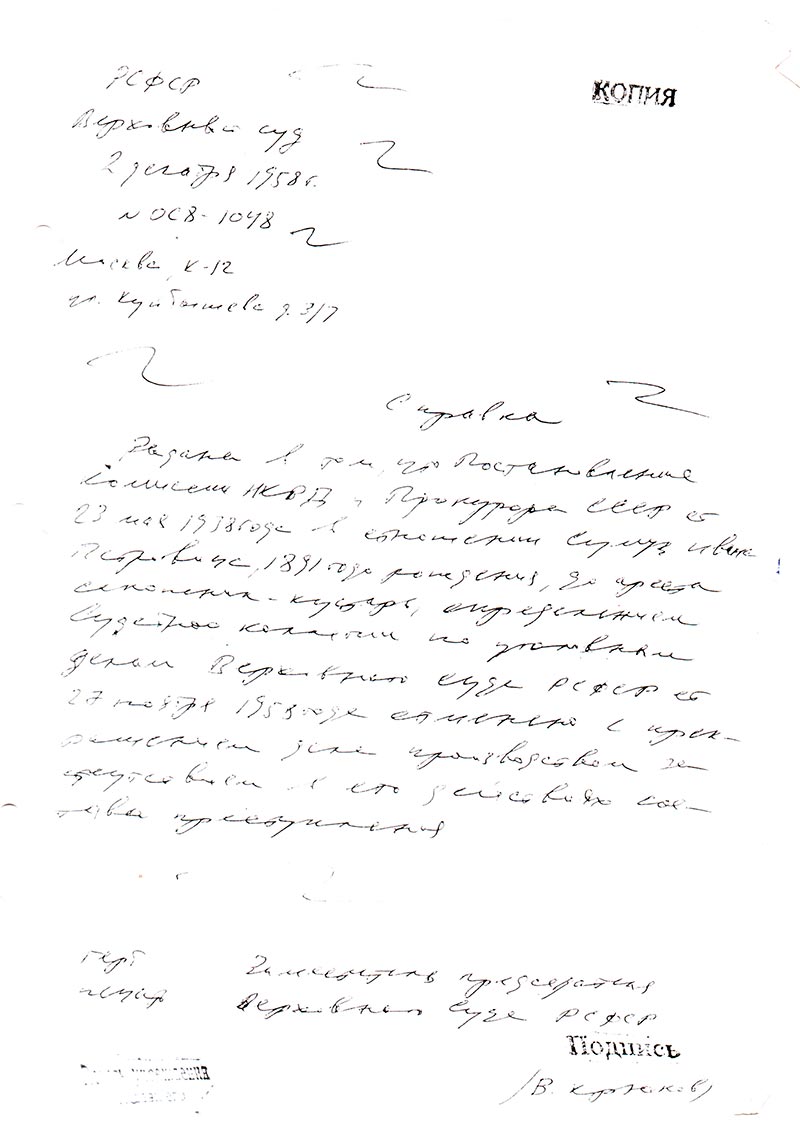 КОПИЯ
РСФСР
Верховный суд
2 декабря 1958 г.
N ОС8-1048
Москва, К-12
ул. Куйбышева д. 3/7
Справка
Выдана в том, что Постановление
Комиссии НКВД и Прокурора СССР от
23 мая 1938 года в отношении Ивана
Петровича, 1891 года рождения, до ареста
кустарь, определением
Судебной коллегии по уголовным
делам Верховного суда РСФСР от
27 ноября 1958 года отменено с прек-
ращением дела производством за
отсутствием в его действиях сос-
тава преступления
герб
печать
Заместитель председателя
Верховного Суда РСФСР
Подпись
/В. Крюков/